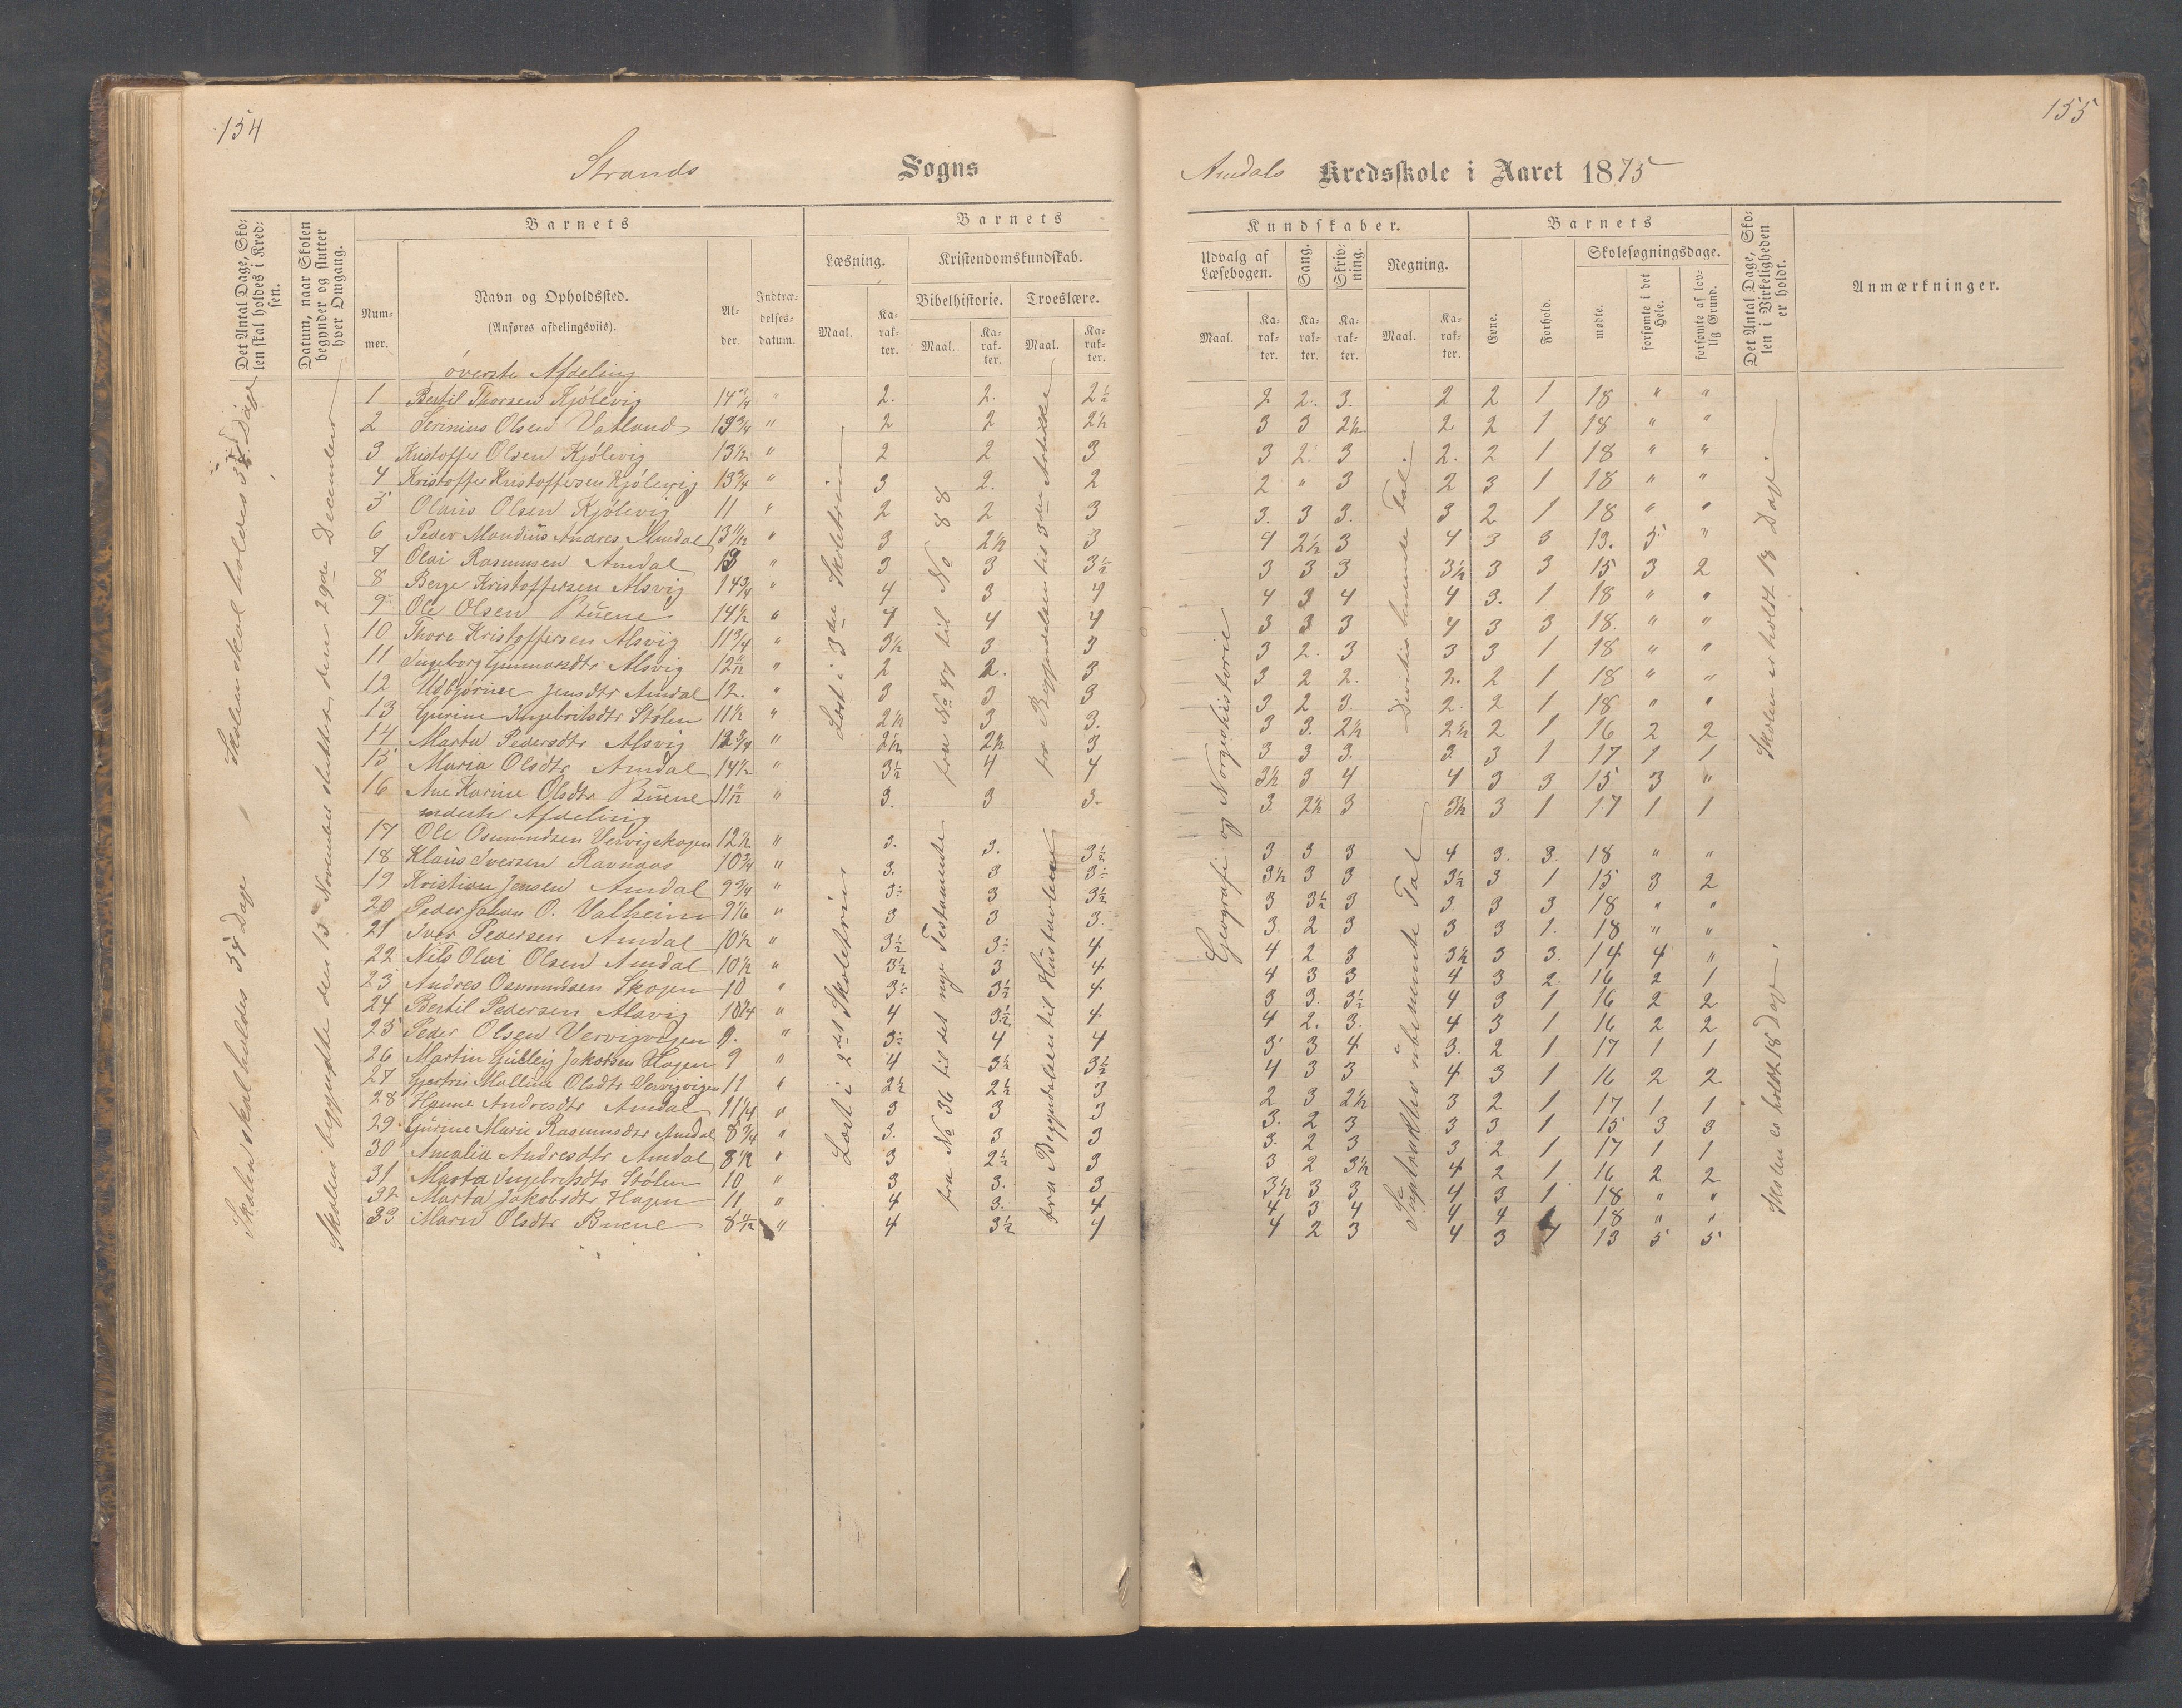 154
155
Strands Sogns
Amdals Kredsskole i Aaret 1875
Det Antal Dage, Skolen skal holdes i Kredsen.
Datum, naar Skolen begynder og slutter hver Omgang.
Barnets
Nummer.
Navn og Opholdssted.
(Anføres afdelingsviis).
Alder.
Indtrædelsesdatum.
Barnets
Læsning.
Kristendomskundskab.
Bibelhistorie.
Troeslære.
Maal.
Karakter.
Maal.
Karakter.
Maal.
Karakter.
Kundskaber.
Udvalg af Læsebogen.
Sang.
Skrivning.
Regning.
Maal.
Karakter.
Karakter.
Karakter.
Maal.
Karakter.
Barnets
Evne.
Forhold.
Skolesøgningsdage.
mødte.
forsømte i det Hele.
forsømte af lovlig Grund.
Det Antal Dage, Skolen i Virkeligheden er holdt.
Anmærkninger.
Skolen skal holdes Dage
Skolen skal holdes Dage
Skolen begyndte den 15 November sluttede den 29de December
Læst i 3die Skoletrin
fra No 47 til No 88
fra Begyndelsen til 3die Artikkel
Læst i 2det Skoletrin
fra No 36 til det nye Testamente
fra Begyndelsen til Hustavlene
Geografi og Norgeshistorie
Division benævnte Tal.
Subtraktion ubenævnte Tal
Skolen er holdt 18 Dag.
Skolen er holdt 18 Dag.
øverste Afdeling
1 Bertil Thorsen Kjølevig 14 3/4 " 2. 2. 2 1/2 2 2. 3. 2 2 1 18 " "
2 Serinius Olsen Vatland 13 3/4 " 2 2 2 1/2 3 3 2 1/2 2 2 1 18 " "
3 Kristoffer Olsen Kjølevig 13 1/2 " 2 2 3 3 2. 3 2. 2 1 18 " "
4 Kristoffer Kristoffersen Kjølevig 13 3/4 " 3 2. 2 2 " 3 2 3 1 18 " "
5 Olaus Olsen Kjølevig 11 " 2 2 3 3. 3 3. 3 2 1 18 " "
6 Peder Mandius Andres Amdal 13 11/12 " 3 2 1/2 3 4 2 1/2 3 4 3 3 13. 5 "
7 Olai Rasmussen Amdal 13 " 3 3 3 1/2 3 3 3 3 1/2 3 3 15 3 2
8 Berge Kristoffersen Alsvig 14 3/4 " 4 3 4 4 3 4 4 3. 1 18 " "
9 Ole Olsen Buene 14 1/2 " 4 4 4 3 3 3 4 3 3 18. " "
10 Thore Kristoffersen Alsvig 11 3/4 " 3 1/2 3 3 3 2. 3 3 3 1 18 " "
11 Ingeborg Gunnarsdtr Alsvig 12 11/12 " 2 2. 3 3 2 2. 2. 2 1 18 " "
12 Udbjørnee Jensdtr Amdal 12. " 3 3 3 3 2 3. 2. 2 1 18 " "
13 Gurine Ingebritsdtr Stølen 11 1/2 " 2 1/2 3 3. 3 3. 2 1/2 2 1/2 2 1 16 2 2
14 Marta Pedersdtr Alsvig 12 3/4 " 2 1/2 2 1/2 3 3 3 3. 3. 3 1 17 1 1
15 Maria Olsdtr Amdal 14 1/2 " 3 1/2 4 4 3 1/2 3 4 4 3 3 15 3 "
16 Ane Karine Olsdtr Buene 11 11/12 " 3. 3 3. 3. 2 1/2 3 3 1/2 3 1 17 1 1
nederste Afdeling
17 Ole Osmundsen Vervigskogen 12 1/2 " 3. 3. 3 1/2 3 3 3 4 3. 3. 18 " "
18 Klaus Iversen Ravnaas 10 3/4 " 3. 3 3 1/2 3 1/2 3 3 3 1/2 3 1 15 3 2
19 Kristian Jensen Amdal 9 3/4 " 3 1/2 3 3 1/2 3 3 1/2 3 3 3 3 18 " "
20 Peder Johan O. Valheim 9 1/6 " 3 3 3 3. 2 3 3 3 1. 18 " "
21 Iver Pedersen Amdal 10 1/2 " 3 1/2 3 1/2 4 4 2 3 3 1/2 3 3. 14 4 "
22 Nils Olai Olsen Amdal 10 1/2 " 3 1/2 3 4 4 3 3 4 3 2. 16 2 1
23 Andres Osmundsen Skogen 10 " 3 1/2 3 1/2 4 3 3. 3 1/2 4 3 1 16 2 2
24 Bertil Pedersen Alsvig 10 3/4 " 4 3 1/2 4 4 2. 3. 4 3 1 16 2 2
25 Peder Olsen Vervigvigen 9. " 3 1/2 4 4 3 3 4 3. 2 1 17 1 1
26 Martin Gulleig Jakobsen Hagen 9 " 4 3 1/2 3 1/2 4 3 3 4 3 1 16 2 2
27 Gjertris Malline Olsdtr Vervigvigen 11 " 2 1/2 2 1/2 3 2 3 2 1/2 3 2 1 17 1 1
28 Hanne Andresdtr Amdal 11 1/4 " 3 3 3 3. 2 3 3 3 1 15 3 3
29 Gurine Marie Rasmusdtr Amdal 8 3/4 " 3. 3 3 3. 2 3 3 2 1 17 1 1
30 Amalia Andresdtr Amdal 8 1/2 " 3 2 1/2 3 3 2 3 1/2 4 2 1. 16 2 2
31 Marta Ingebritsdtr Stølen 10 " 3 3. 3 3 1/2 3 3 4 3 1. 18 " "
32 Marta Jakobsdtr Hagen 11 " 4 3. 4 4 3 4 4 4 1 18 " "
33 Maren Olsdtr Buene 8 11/12 " 4 3 1/2 4 4 2 3 4 3 13 5 5